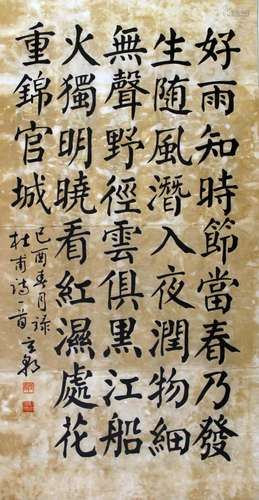 好雨知時節當春乃發
生随風潛入夜潤物細
無聲野徑雲俱黑江船
火獨明曉看紅濕處花
重錦官城
己酉春月録
杜甫詩一首